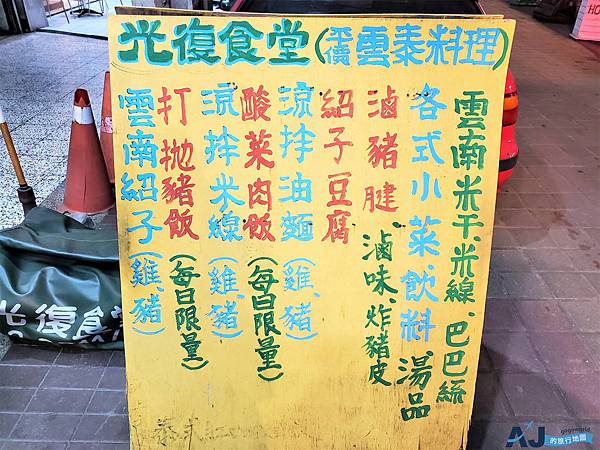 光復食堂(平價雲泰料理)
雲南米干.米線.巴巴絲
各式小菜飲料 湯品
滷豬腱 滷味.炸豬皮
紹子豆腐
涼拌油麵(雞、豬)
酸菜肉飯(每日限量)
涼拌米線(雞、豬)
打拋豬飯(每日限量)
雲南紹子(雞、豬)
光復食堂
AJ
gogoworld
的旅行地圖
HO